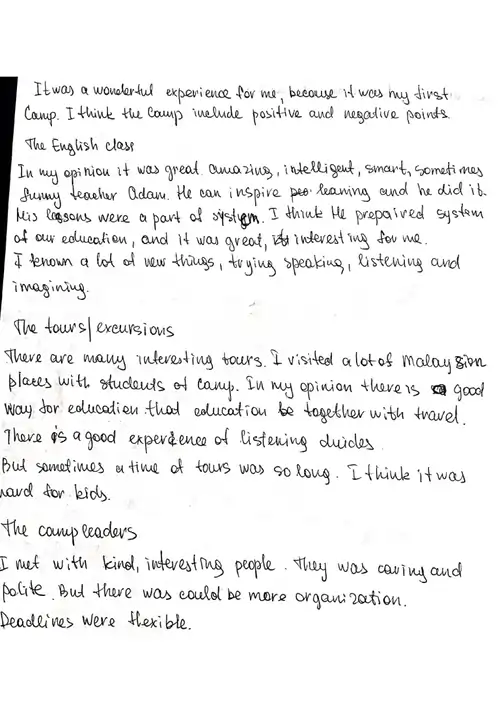 It was a wonderful experience for me, because it was my first
Camp. I think the Camp include positive and negative points.
The English class
In my opinion it was great. amazing, intelligent, smart, sometimes
funny teacher Adam. He can inspire leaning and he did it.
His lessons were a part of system. I think He prepaired system
of our education, and it was great, interesting for me.
I known a lot of new things, trying speaking, listening and
imagining.
The tours/excursions
There are many interesting tours. I visited a lot of Malaysian
places with students of camp. In my opinion there is good
way for education that education be together with travel.
There is a good experience of listening duides
But sometimes a time of tours was so long. I think it was
hard for kids.
The camp leaders
I met with kind, interesting people. They was caring and
polite. But there was could be more organization.
Deadlines were flexible.